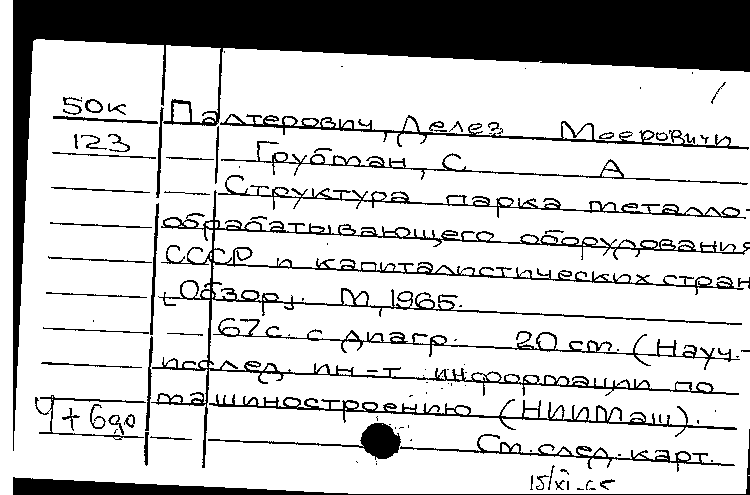 50к Палтерович, Делез Меерович и
123 Грубман, С А
Структура парка металло-
обрабатывающего оборудования
СССР и капиталистических стран
[Обзор]. М, 1965.
67с. с диагр. 20 см. (Науч.-
исслед. ин-т информации по
машиностроению (НИИМаш).
Ч+6до
См. след. карт.
15/XI-65